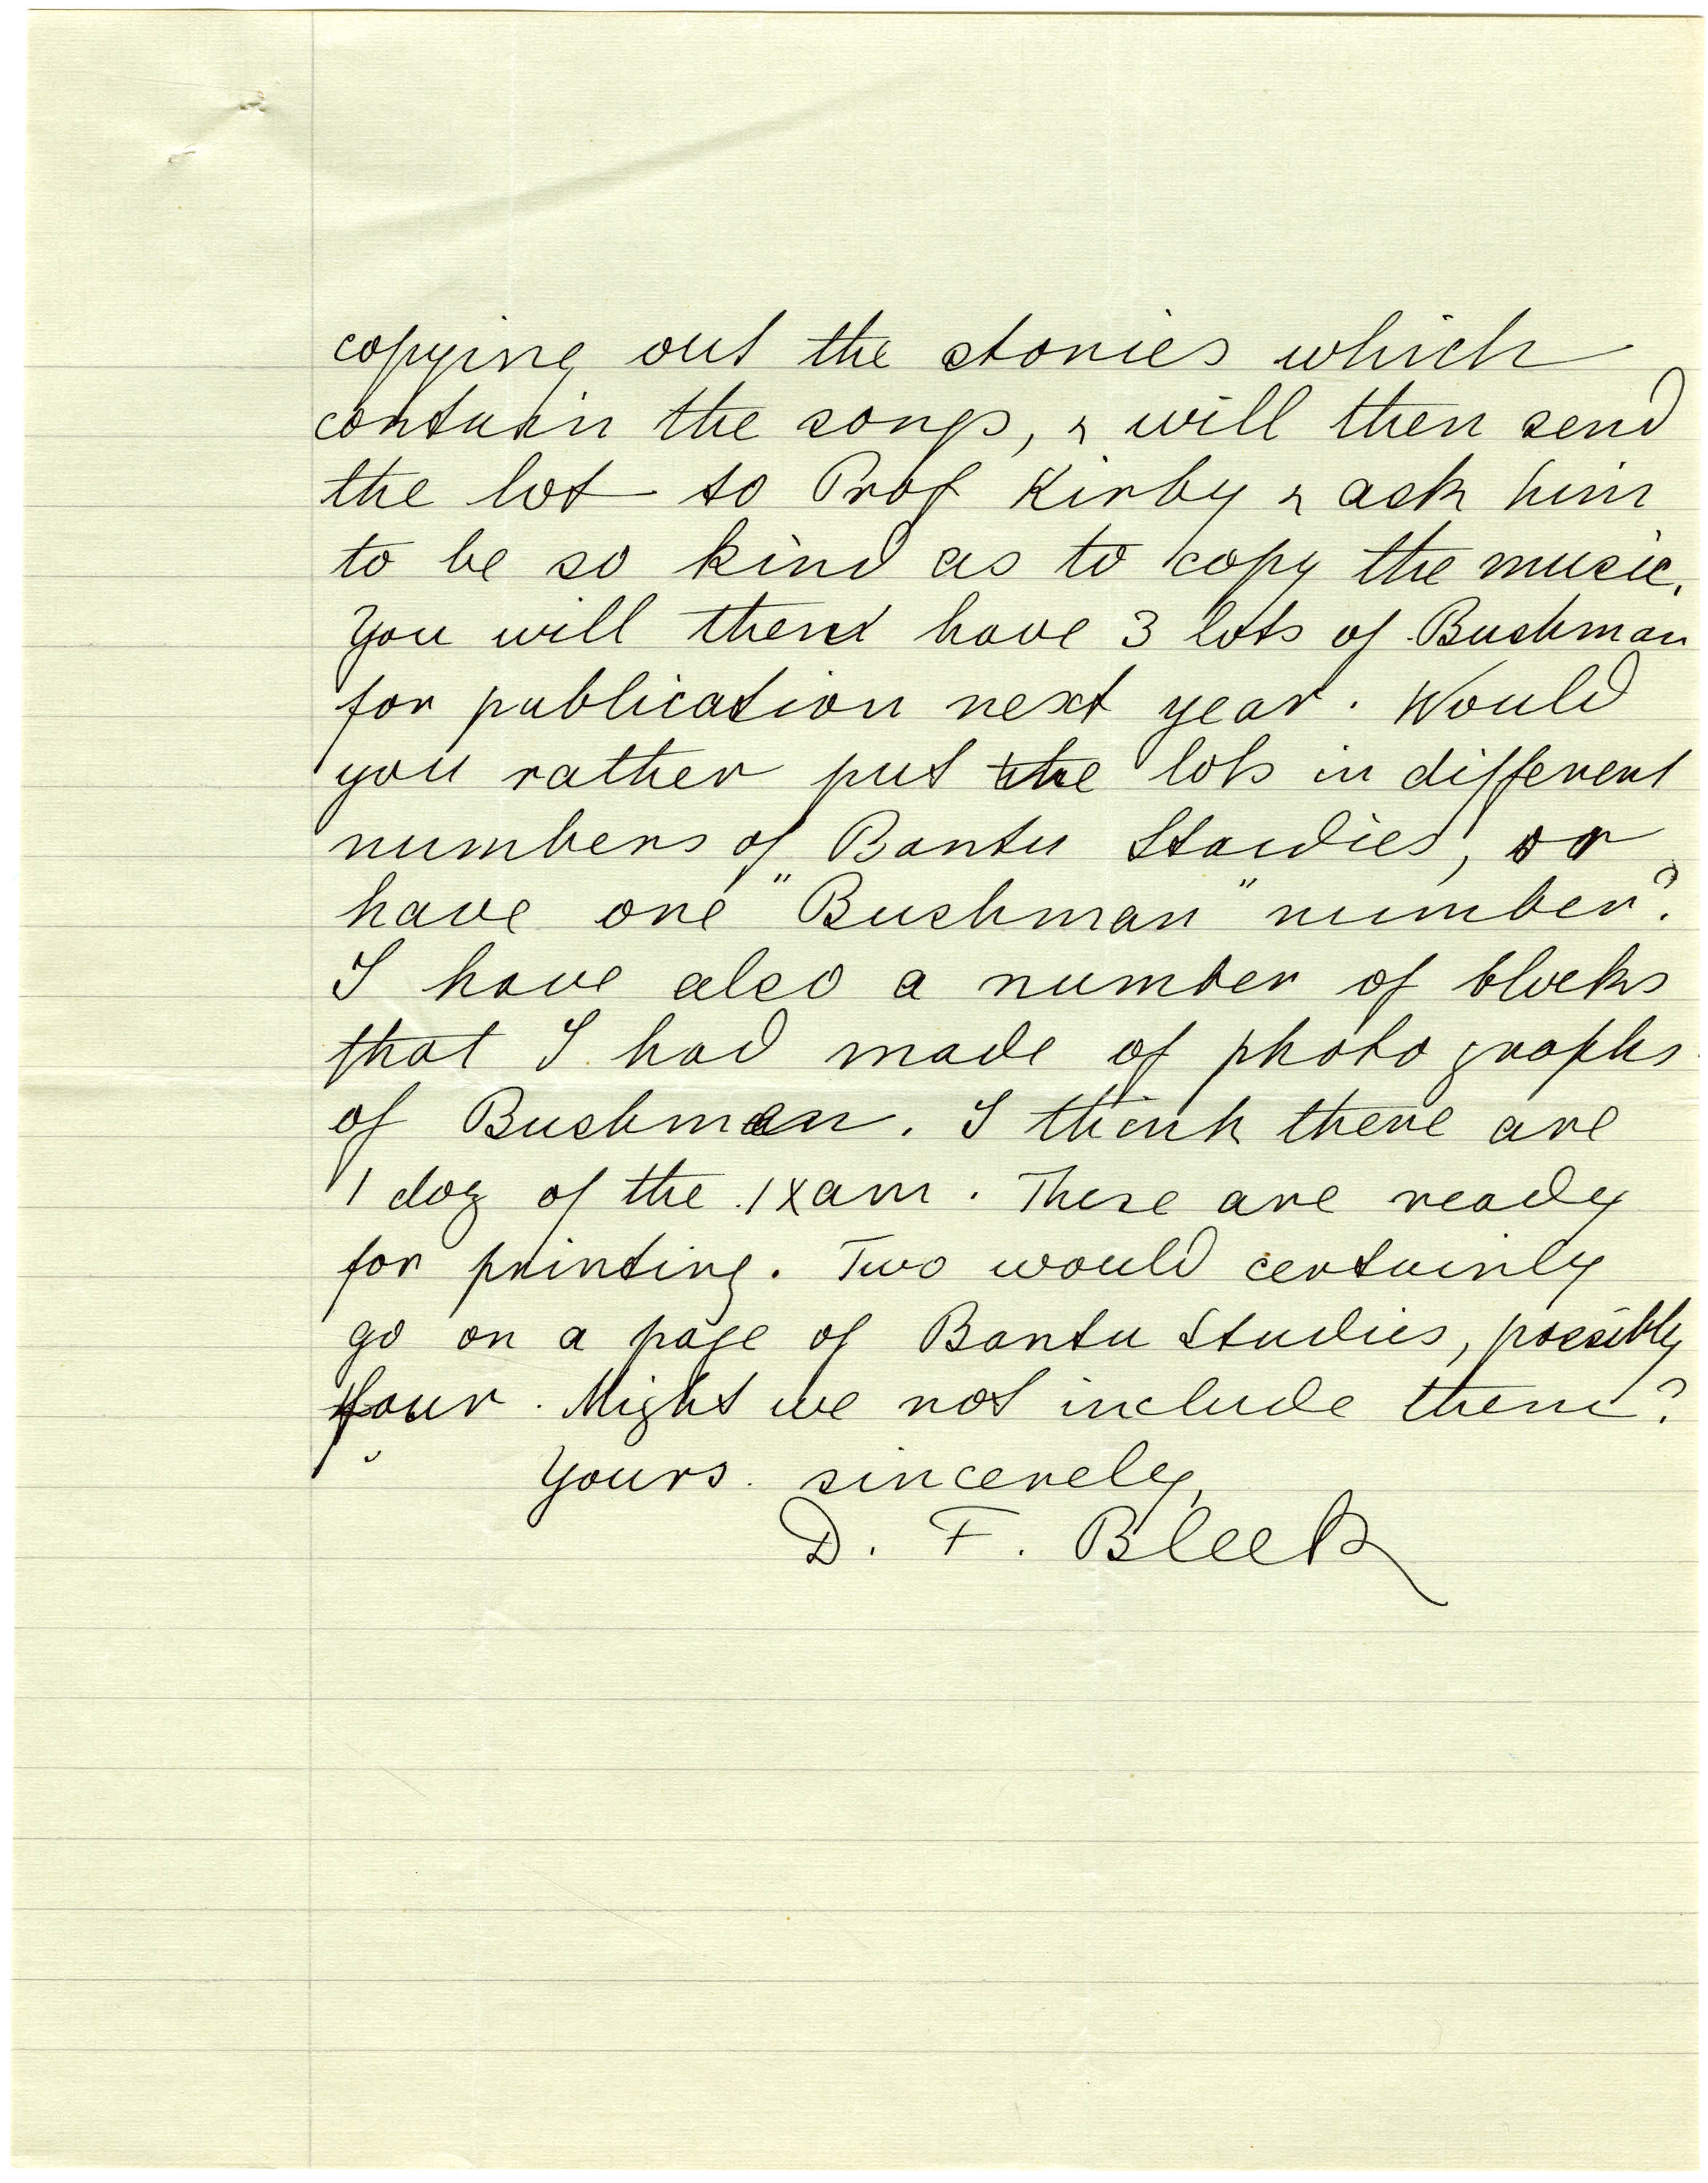 copying out the stories which
contain the songs, & will then send
the lot to Prof Kirby & ask him
to be so kind as to copy the music.
You will then have 3 lots of Bushman
for publication next year. Would
you rather put the lots in different
numbers of Bantu Studies, or
have one "Bushman" number?
I have also a number of blocks
that I had made of photographs
of Bushmen. I think there are
1 doz of the /xam. These are ready
for printing. Two would certainly
go on a page of Bantu Studies, possibly
four. Might we not include them?
Yours sincerely,
D. F. Bleek